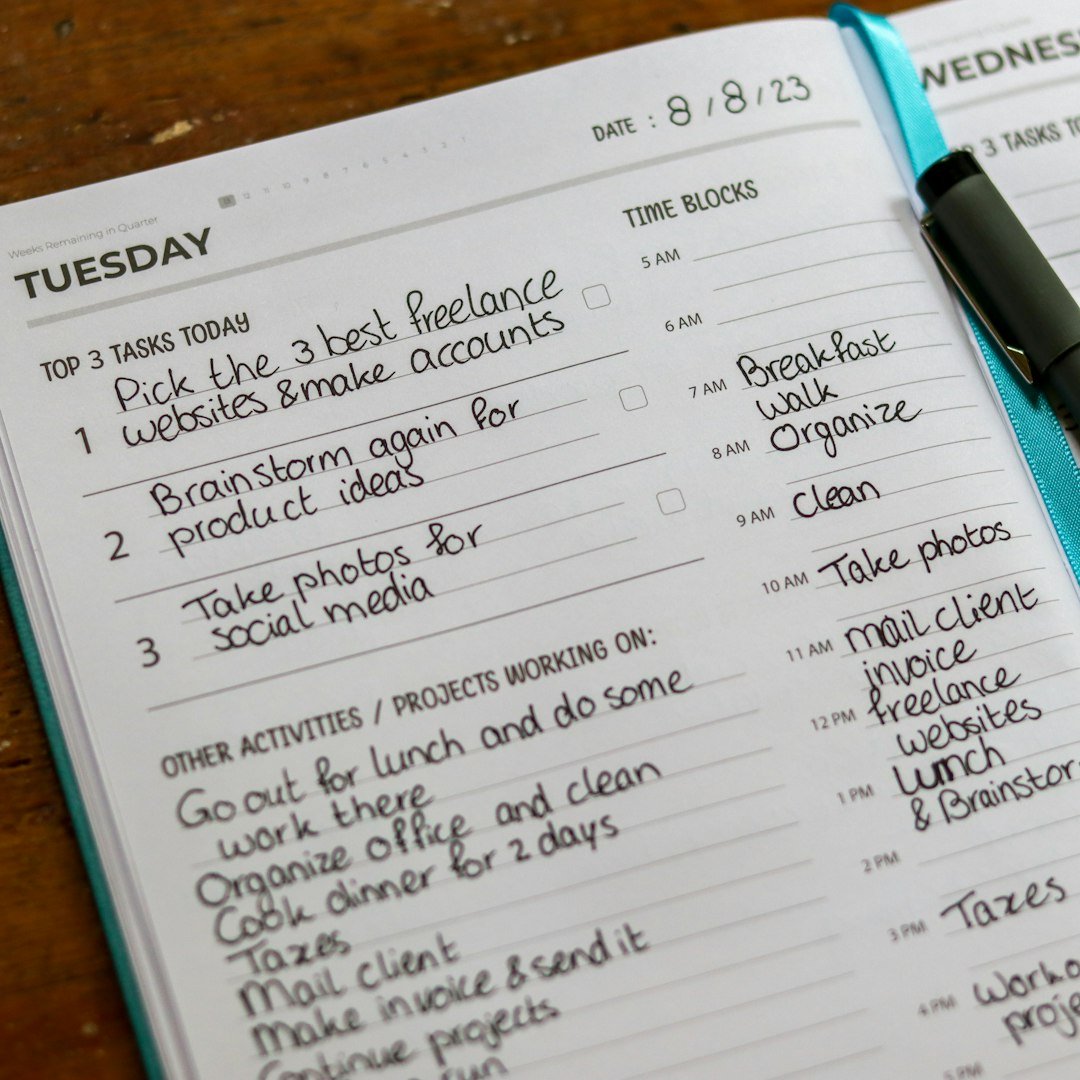 Weeks Remaining in Quarter
13 12 11 10 9 8 7 6 5 4 3 2 1
TUESDAY
DATE : 8/8/23
TOP 3 TASKS TODAY
Pick the 3 best freelance
1 websites & make accounts
Brainstorm again for
2 product ideas
Take photos for
3 social media
OTHER ACTIVITIES / PROJECTS WORKING ON:
Go out for lunch and do some
work there
Organize office and clean
Cook dinner for 2 days
Taxes
Mail client
Make invoice & send it
Continue projects
run
TIME BLOCKS
5 AM
6 AM
7 AM Breakfast
walk
8 AM Organize
9 AM Clean
10 AM Take photos
11 AM mail client
invoice
12 PM freelance
websites
1 PM lunch
& Brainstor
2 PM
3 PM Taxes
4 PM Work o
proje
5 PM
WEDNES
3 TASKS TO